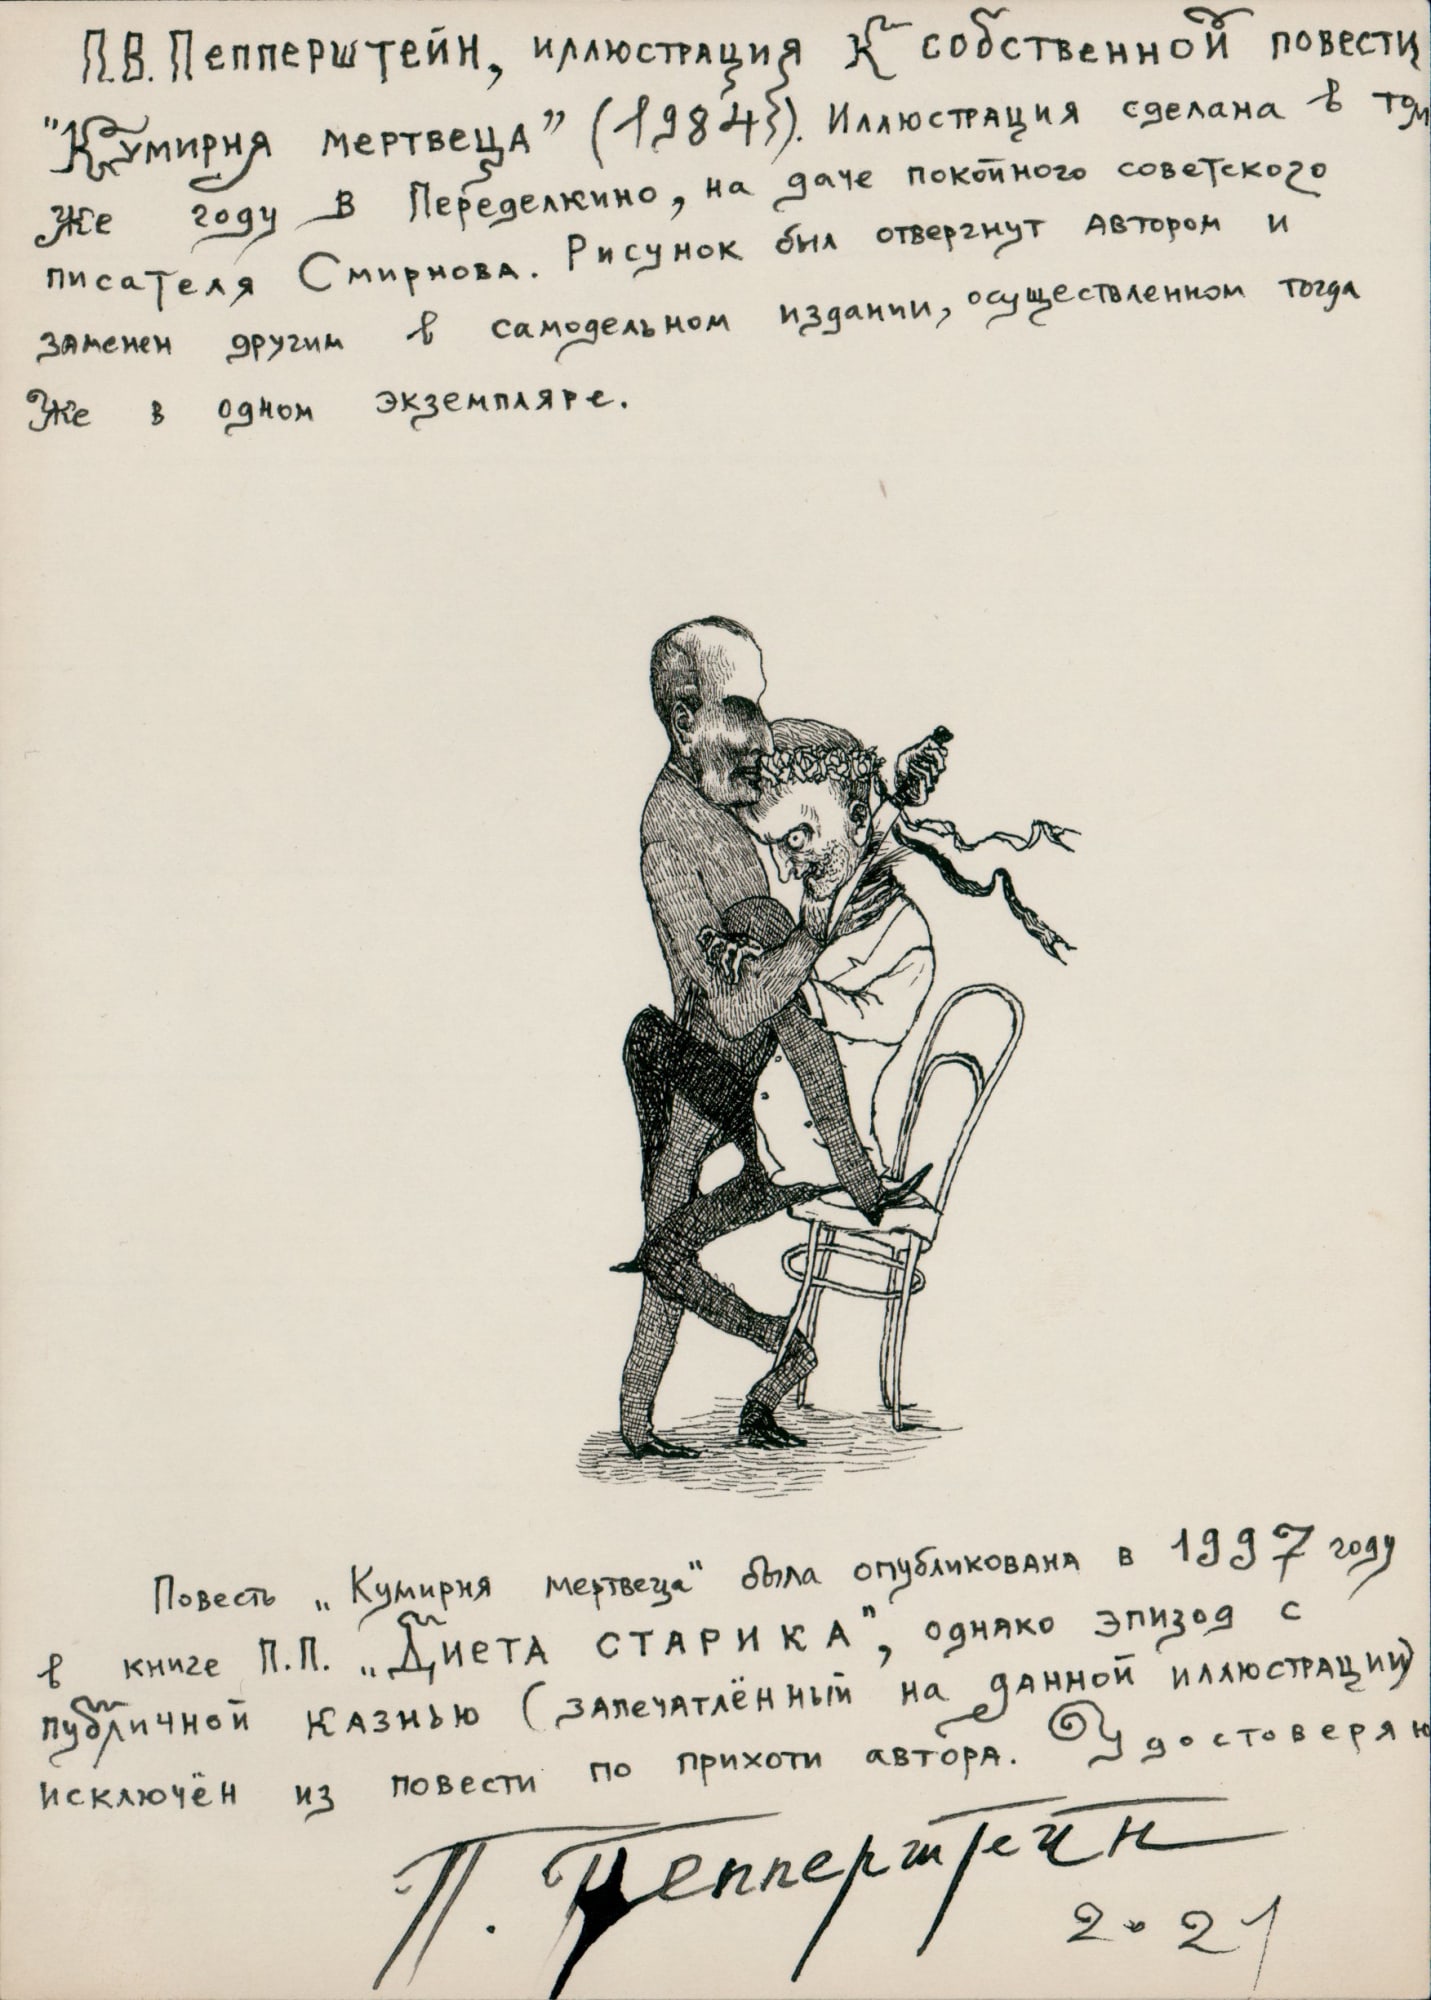 П.В. Пепперштейн, иллюстрация к собственной повести
"Кумирня мертвеца" (1984). Иллюстрация сделана в том
же году в Переделкино, на даче покойного советского
писателя Смирнова. Рисунок был отвергнут автором и
заменен другим в самодельном издании, осуществленном тогда
же в одном экземпляре.
Повесть „Кумирня мертвеца" была опубликована в 1997 году
в книге П.П. „ДИЕТА СТАРИКА", однако эпизод с
публичной казнью (запечатлённый на данной иллюстрации)
исключён из повести по прихоти автора. Удостоверяю
П. Пепперштейн
2021